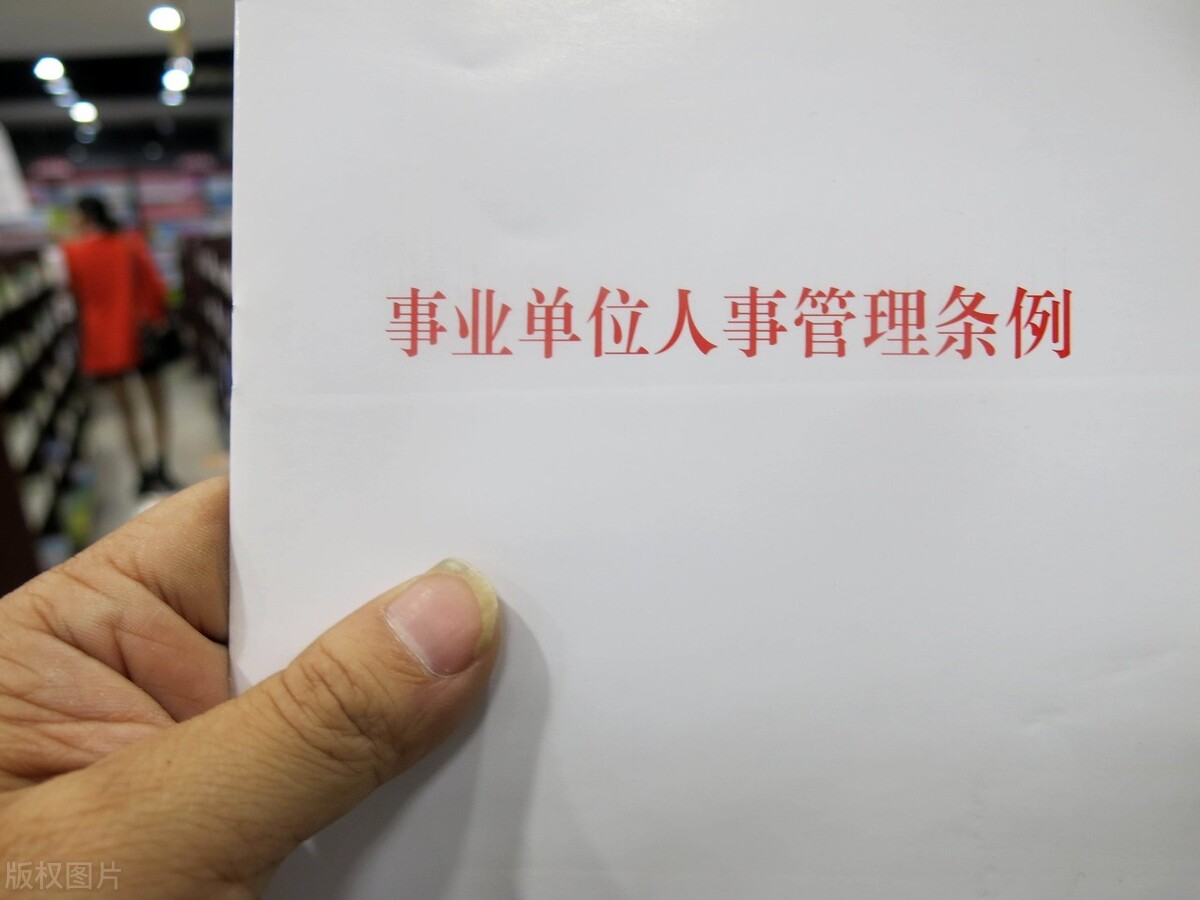 事业单位人事管理条例
版权图片